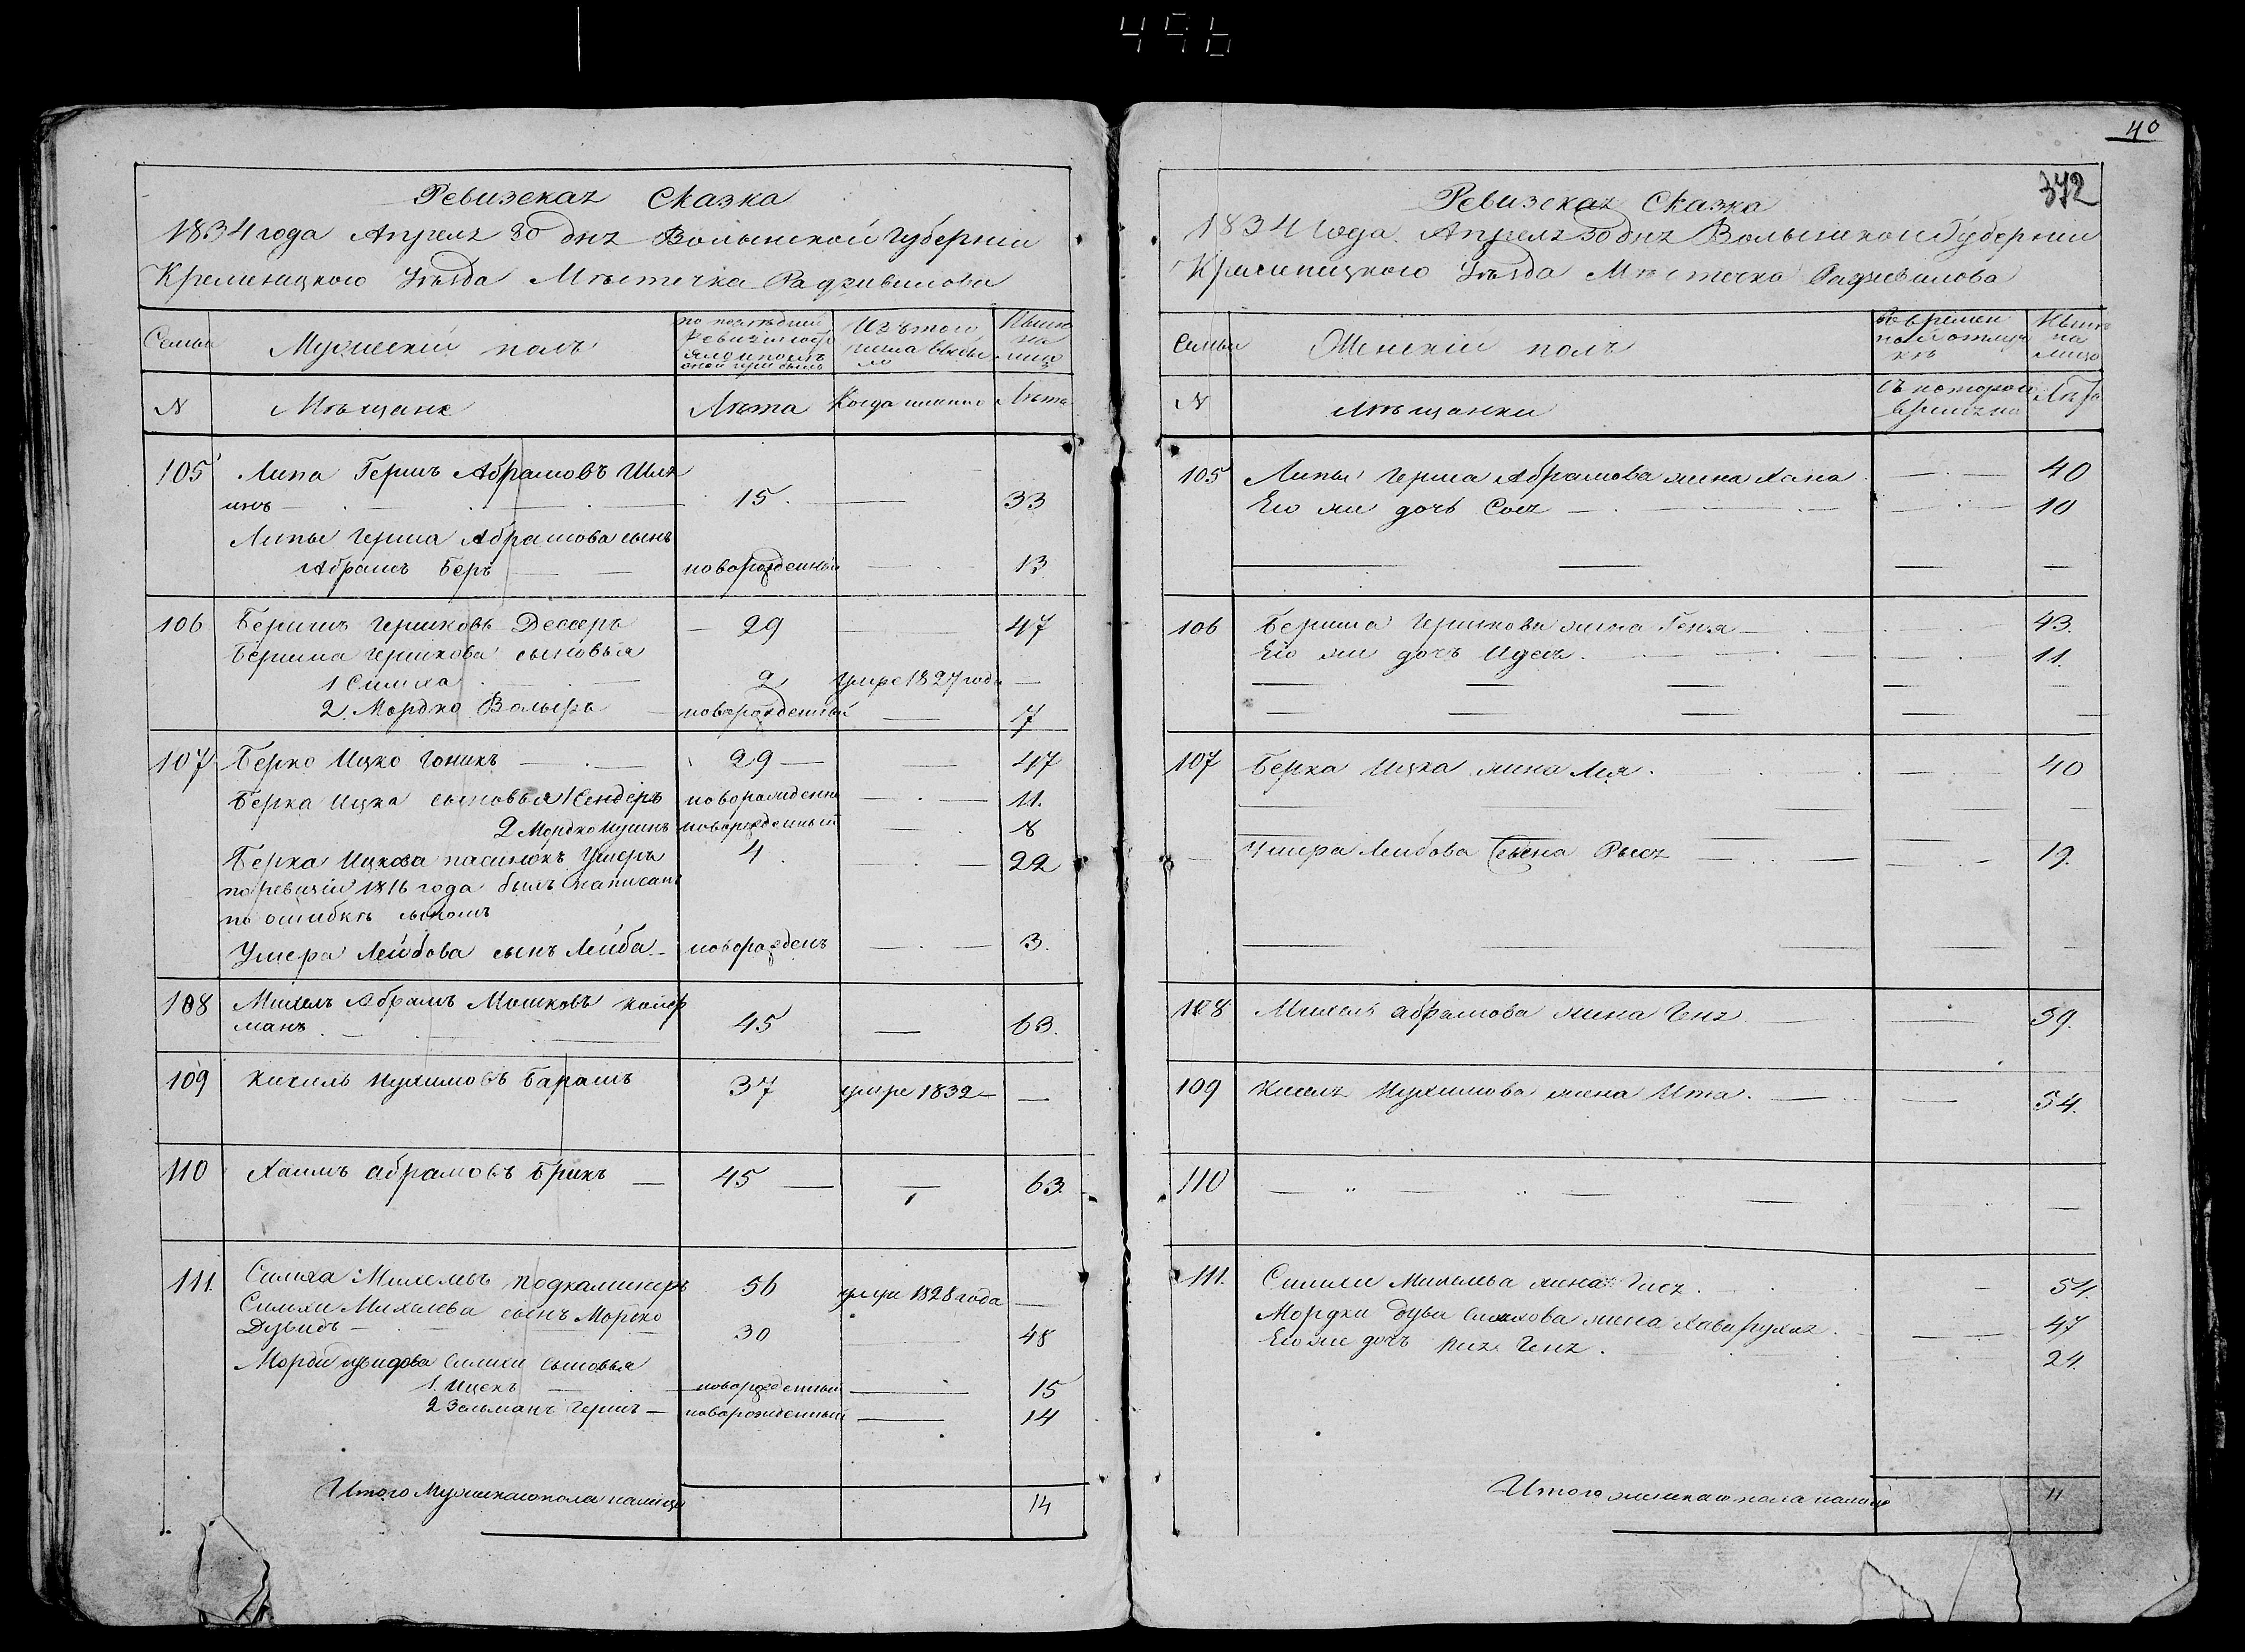 496
Ревизская Сказка
1834 года Апреля 30 дня Волынской Губернии
Кременицкого Уѣзда Мѣстечка Радзивилова
Семьи Мужескій полъ по послѣдней ревизіи состояло и послѣ оной прибыло Изъ того числа выбыло Нынѣ на лицо
N Мѣщане Лѣта Когда именно Лѣта
105 Липа Гершъ Абрамовъ Шля
инъ — 15 — 33
Липы Герша Абрамова сынъ
Абрамъ Беръ — новорожденный — 13
106 Беришъ Гершковъ Дессеръ — 29 — 47
Бериша Гершкова сыновья
1 Симха — 2 умре 1827 года —
2 Мордко Вольфъ новорожденный — 17
107 Берко Ицко Гоникъ — 29 — 47
Берка Ицка сыновья 1 Сендеръ новорожденны — 11.
2 Мордко новорожденный — 8
Берка Ицкова пасинокъ Ушеръ 4 — 22
по ревизіи 1816 года былъ написанъ
по ошибкѣ сыномъ
Ушера Лейбова сынъ Лейба — новорожденъ — 3.
108 Михель Абрамъ Мошковъ
манъ — 45 — 63.
109 Кисиль Нухимовъ Барашъ 37 умре 1832 — —
110 Хаимъ Абрамовъ Брикъ — 45 — — 63.
111. Симха Михелевъ Подкаминеръ 56 умре 1828 года —
Симхи Михелева сынъ Мордко
Дувидъ — 30 — 48
Мордка Дувидова Симхи сыновья
1. Ицекъ — новорожденный — 15
2 Зельманъ Гершъ — новорожденный — 14
Итого Мужеска пола налицо 14
40
372
Ревизская Сказка
1834 года Апреля 30 дня Волынской Губернии
Кременицкого Уѣзда Мѣстечка Радзивилова
Семьи Женскій полъ Во временной отлучкѣ Нынѣ на лицо
N Мѣщанки Съ котораго времени Лѣта
105 Липы Герша Абрамова жена Хана — 40
Его же дочь Сося — 10
106 Бериша Гершкова жена Геня — 43.
Его же дочь Идесъ — 11.
107 Берка Ицка жена Лея — 40
Ушера Лейбова жена Рыся — 19.
108 Михеля Абрамова жена Геня — 59.
109 Киселя Нухимова жена Ита. — 54.
110 —
111. Симхи Михелева жена Гися — 54.
Мордки Дувы Симхова жена Хава Рухля. — 47
Его же дочь Геня. — 24.
Итого женска пола налицо 11